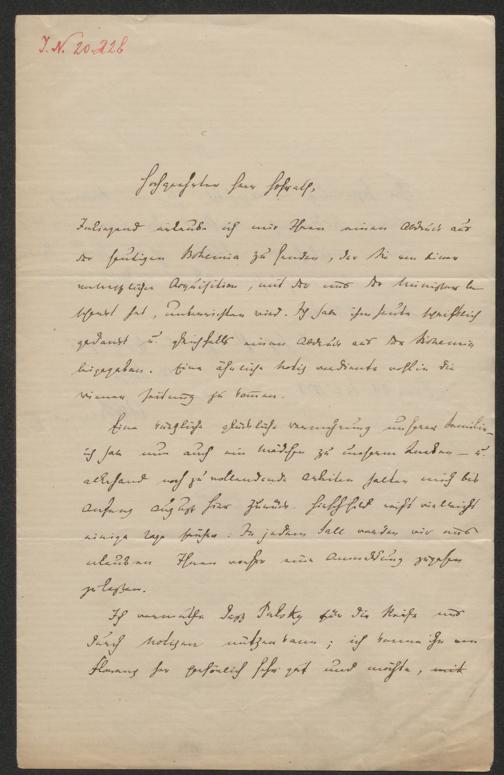 J. N. 20.226
Hochgeehrter Herr Hofrath,
Inliegend erlaube ich mir Ihnen einen Abdruck aus
der heutigen Bohemia zu senden, der Sie von einer
Acquisition, mit der uns der Minister be
schenkt hat, unterrichten wird. Ich habe ihm heute schriftlich
gedankt u. gleichfalls einen Abdruck aus der Bohemia
beigegeben. Eine ähnliche Notiz verdiente wohl in die
Wiener Zeitung zu kommen.
Eine glückliche Vermehrung unserer Familie,
ich habe nun auch ein Mädchen zu unserem Knaben – u.
allerhand noch zu vollendende Arbeiten halten mich bis
Anfang August hier zurück. Hirschfeld reist vielleicht
einige Tage früher. In jedem Fall werden wir uns
erlauben Ihnen vorher eine Anmeldung zugehen
zu lassen.
Ich vermuthe dass Pulsky für die Reise uns
durch Notizen nützen kann; ich kenne ihn von
Florenz her persönlich sehr gut und möchte, mit